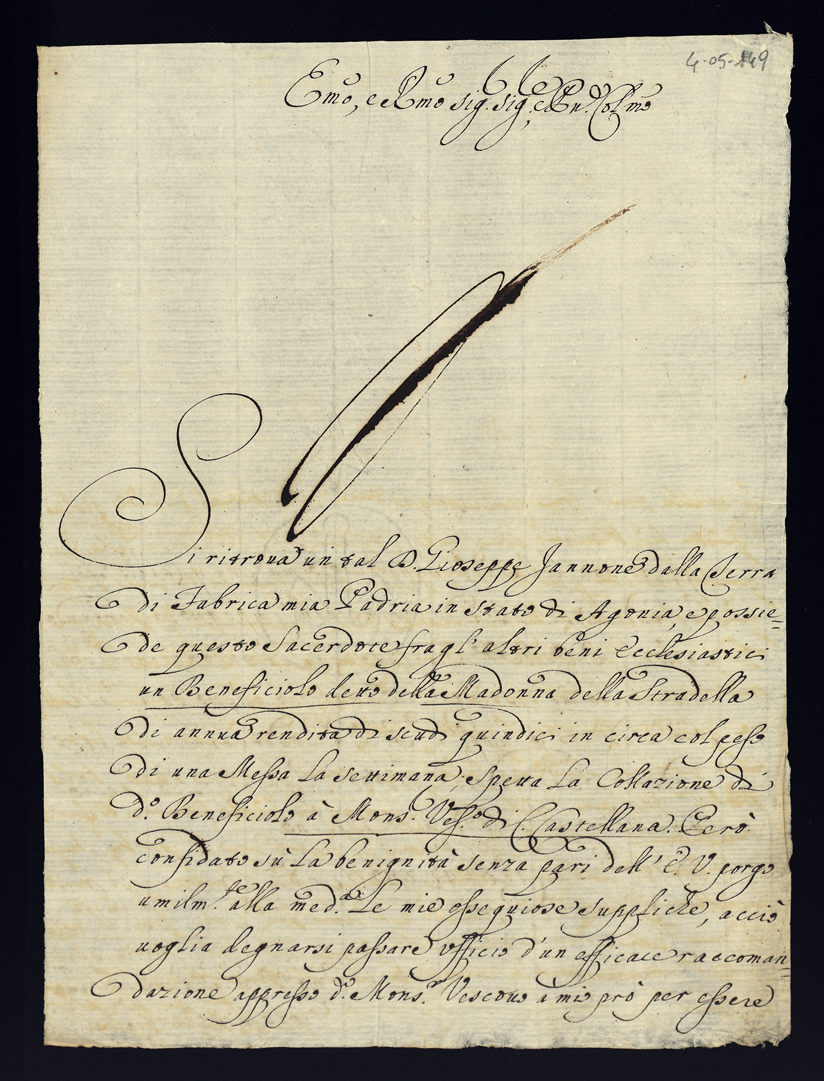 4-05-149
Emo, e Rmo sig. sig. e Pn. Colmo
Si ritrova un tal D. Gioseppe Jannone dalla Serra
di Fabrica mia Padria in stato di Agonia, e possie=
de questo Sacerdote fra gl'altri beni Ecclesiastici
un Beneficiolo detto della Madonna della Stradella
di annua rendita di scudi quindici in circa col peso
di una Messa la settimana; spetta la Collazione di
do. Beneficiolo à Mons.r Vesco. di C. Castellana. Però
confidato sù la benignità senza pari dell'E. V. porgo
umilm.te alla med.a le mie ossequiose suppliche, acciò
voglia degnarsi passare officio d'un efficace raccoman=
dazione appresso do. Mons.r Vescovo à mio prò per essere